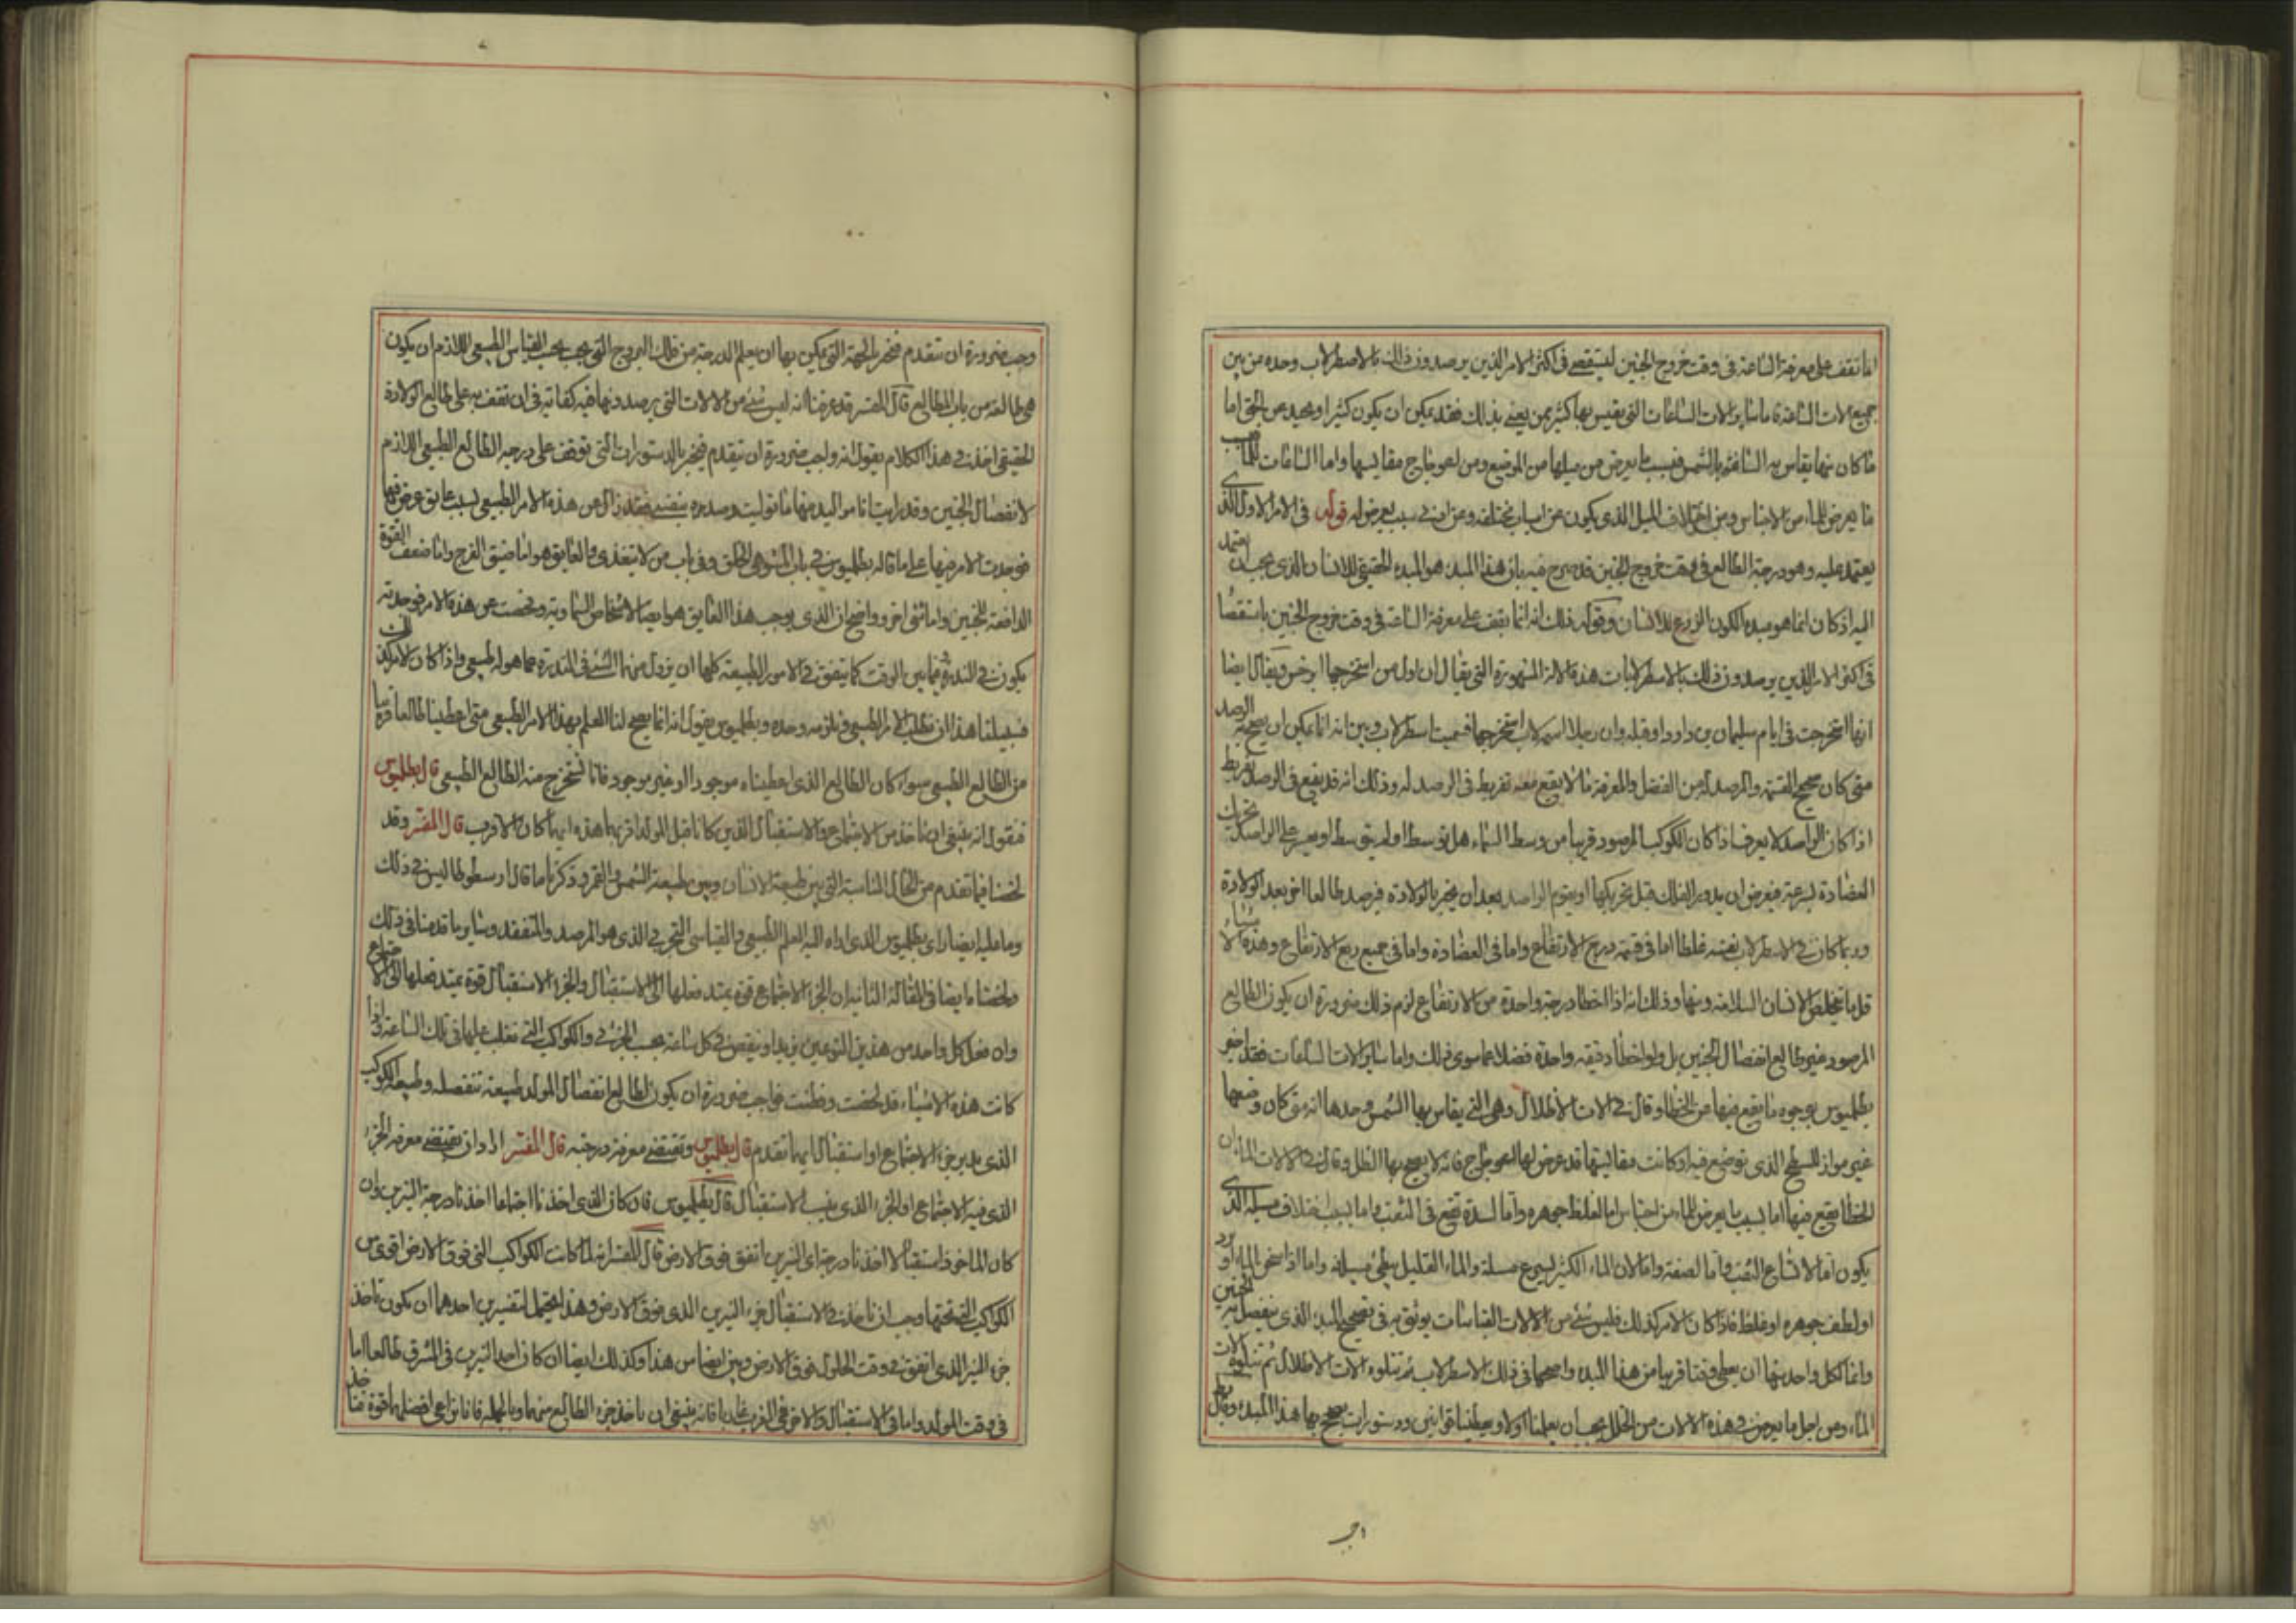 انما نقف على معرفة الساعة في وقت خروج الجنين ليستقصى في اكثر الامر الذين يرصدون ذلك بالاصطرلاب وحده من بين
جميع الات الساعة فاما ساير الات الساعات التي يقيس بها كثير ممن يعنى بذلك فقد يمكن ان يكون كثيرا او يحيد عن الحق اما
ما كان منها يقاس به الساعة بالشمس فبسبب ما يعرض من ميلها من الموضع ومن اعوجاج مقاييسها واما الساعات
ما يعرض للماء من الاحتباس ومن اختلاف السيل الذي يكون عن اسباب مختلفة وعن اي سبب يعرض له قوله في الامر الاول الذي
يعتمد عليه وهو درجة الطالع في وقت خروج الجنين قد صرح فيه بان هذا المبدء هو المبدء الحقيقي للانسان الذي يجب ان يعتمد
اليه اذ كان انما هو مبدء لكون الزرع لا للانسان وقوله ذلك انه انما يقف على معرفة الساعة في وقت خروج الجنين باستقصا
في اكثر الامر الذين يرصدون ذلك بالاسطرلابات هذه الالة المشهورة التي يقال ان اول من استخرجها ابرخس ويقال ايضا
انها استخرجت في ايام سليمان بن داود او قبله وان رجلا اسمه لاب استخرجها فسميت اسطرلاب وبين انه انما يمكن ان يصح به الرصد
متى كان صحيح القسمة والمرصد له من الفضل والمعرفة ما لا يقع معه تفريط في الرصد له وذلك انه قد يقع في الرصد تفريط
اذا كان الراصد لا يعرف اذا كان الكوكب المرصود قريبا من وسط السماء هل توسط او لم يتوسط او يعسر على الراصد تحريك
العضادة بسرعة فيعرض ان يدور الفلك قبل تحريكها او يقوم الراصد بعد ان يخبر بالولادة فيرصد طالعا اخر بعد الولادة
وربما كان في الاسطرلاب نفسه غلطا اما في قسمة درج الارتفاع واما في العضادة واما في جميع ربع الارتفاع وهذه الاشياء
قل ما يتخلص الانسان السلامة منها وذلك انه اذا اخطا درجة واحدة من الارتفاع لزم ذلك ضرورة ان يكون الطالع
المرصود غير طالع انفصال الجنين بل ولو اخطأ دقيقه واحدة فضلا عما سوى ذلك واما ساير الات الساعات فقد اخبر
بطلميوس بوجوه ما يقع فيها من الخطا وقال في الات الاظلال وهي التي يقاس بها الشمس وحدها انه متى كان وضعها
غير مواز للسطح الذي توضع فيه او كانت مقاييسها قد عرض لها اعوجاج فانه لا يصح بها الظل وقال في الالات الماء ان
الخطا يقع فيها اما بسبب ما يعرض للماء من احتباس اما لغلظ جوهره واما لسدة تقع في الثقب واما بسبب اختلاف مسيله الذي
يكون اما لاتساع الثقب واما لضيقه واما لان الماء الكثير يسرع مسيله والماء القليل يبطئ مسيله واما اذا سخن الماء او برد
او لطف جوهره او غلظ فاذا كان الامر كذلك فليس شئ من الالات القياسات يوثق به في تصحيح المبدء الذي ينفصل به الجنين
وانما لكل واحد منها ان يعطي وقتا قريبا من هذا المبدء واصحها في ذلك الاسطرلاب ثم تتلوه الات الاظلال ثم تتلوه الات
الماء ومن اجل ما يعرض في هذه الالات من الخلل يجب ان يعلمنا اولا ويعطينا قوانين ودستورات يصح بها هذا المبدء وقال
اجر
وجب ضرورة ان نتقدم فنخبر بالجهة التي يمكن بها ان يعلم الدرجة من فلك البروج التي يجب بحسب القياس الطبيعي اللازم ان يكون
هي طالعة من باب المطالع قال المفسر قد عرفنا انه ليس شئ من الالات التي يرصد ونها فيه كفاية في ان نقف به على طالع الولادة
الحقيقي اخذ في هذا الكلام يقول انه واجب ضرورة ان نتقدم فنخبر بالدستورات التي توقف على درجه الطالع الطبيعي اللازم
لانفصال الجنين وقد راينا نا مواليد منها ما توليت رصده بنفسي فقد زال عن هذه الامر الطبيعي بسبب عايق عرض فيها
فوجدت الامر فيها على ما قاله بطلميوس في باب المشوهي الخلق وفي باب من لا يتغذى والعايق هو اما ضيق الفرج واما ضعف القوة
الدافعة للجنين واما شئ اخر وواضح ان الذي يوجب هذا العايق هو ايضا الاشخاص السماوية وفحصت عن هذه الامر فوجدته
يكون في الندرة فيما بين الوقت كما يتفق في الامور الطبيعة كلها ان يزول منها الشئ في الندرة عما هو له طبيعي واذا كان الامر كذلك
فسبيلنا هذا ان نطلب الامر الطبيعي ونلزمه وحده وبطلميوس يقول انه انما يصح لنا العلم بهذا الامر الطبيعي متى اعطينا طالعا قريبا
من الطالع الطبيعي سواء كان الطالع الذي اعطيناه موجودا او غير موجود فانا نستخرج منه الطالع الطبيعي قال بطلميوس
فنقول انه ينبغي ان ناخذ من الاجتماع والاستقبال الذين كانا قبل المولد اقربهما هذه ايهما كان الاقرب قال المفسر وقد
لخصنا فيما تقدم من الحال المناسبة التي بين طبيعة الانسان وبين طبيعة الشمس والقمر وذكرنا ما قال ارسطوطاليس في ذلك
وما عليه ايضا راي بطلميوس الذي اداه اليه العلم الطبيعي والقياسي التجربي الذي هو المرصد والمتفقد وساير ما قدمنا في ذلك
ولخصنا ايضا في المقالة الثانية ان الجزء الاجتماع قوة يمتد فعلها الى الاستقبال والجزء الاستقبال قوة يمتد فعلها الى الاجتماع
وان فعل كل واحد من هذين النوعين يزيد او ينقص في كل ساعة بحسب الجزء والكواكب التي تغلب عليها في تلك الساعة واذا
كانت هذه الاشياء قد لخصت وظنت فواجب ضرورة ان يكون لطالع انفصال المولد طبيعة تنفصله وطبيعة الكوكب
الذي يدبر جزء الاجتماع او استقبال ايهما تقدم قال بطلميوس ونستقصى معرفة درجته قال المفسر اراد ان نستقصى معرفه الجزء
الذي فيه الاجتماع او الجزء الذي ينسب الاستقبال قال بطلميوس فان كان الذي اخذنا اجتماعا اخذنا درجة النيرين وان
كان الماخوذ استقبالا اخذنا درجة اي النيرين اتفق فوق الارض قال المفسر انه لما كانت الكواكب التي فوق الارض اقوى من
الكواكب التي تحتها وجب ان ناخذ في الاستقبال جزء النيرين الذي فوق الارض وهذا يحتمل لتفسيرين احدهما ان يكون ناخذ
جزء النير الذي اتفق في وقت الحلول فوق الارض وبين ايضا من هذا وكذلك ايضا ان كان احد النيرين في المشرق طالعا اما
في وقت المولد واما في الاستقبال والاخر في الغرب غاربا فانه ينبغي ان ناخذ جزء الطالع منهما وبالجملة فانا نراعي افضلهما قوة